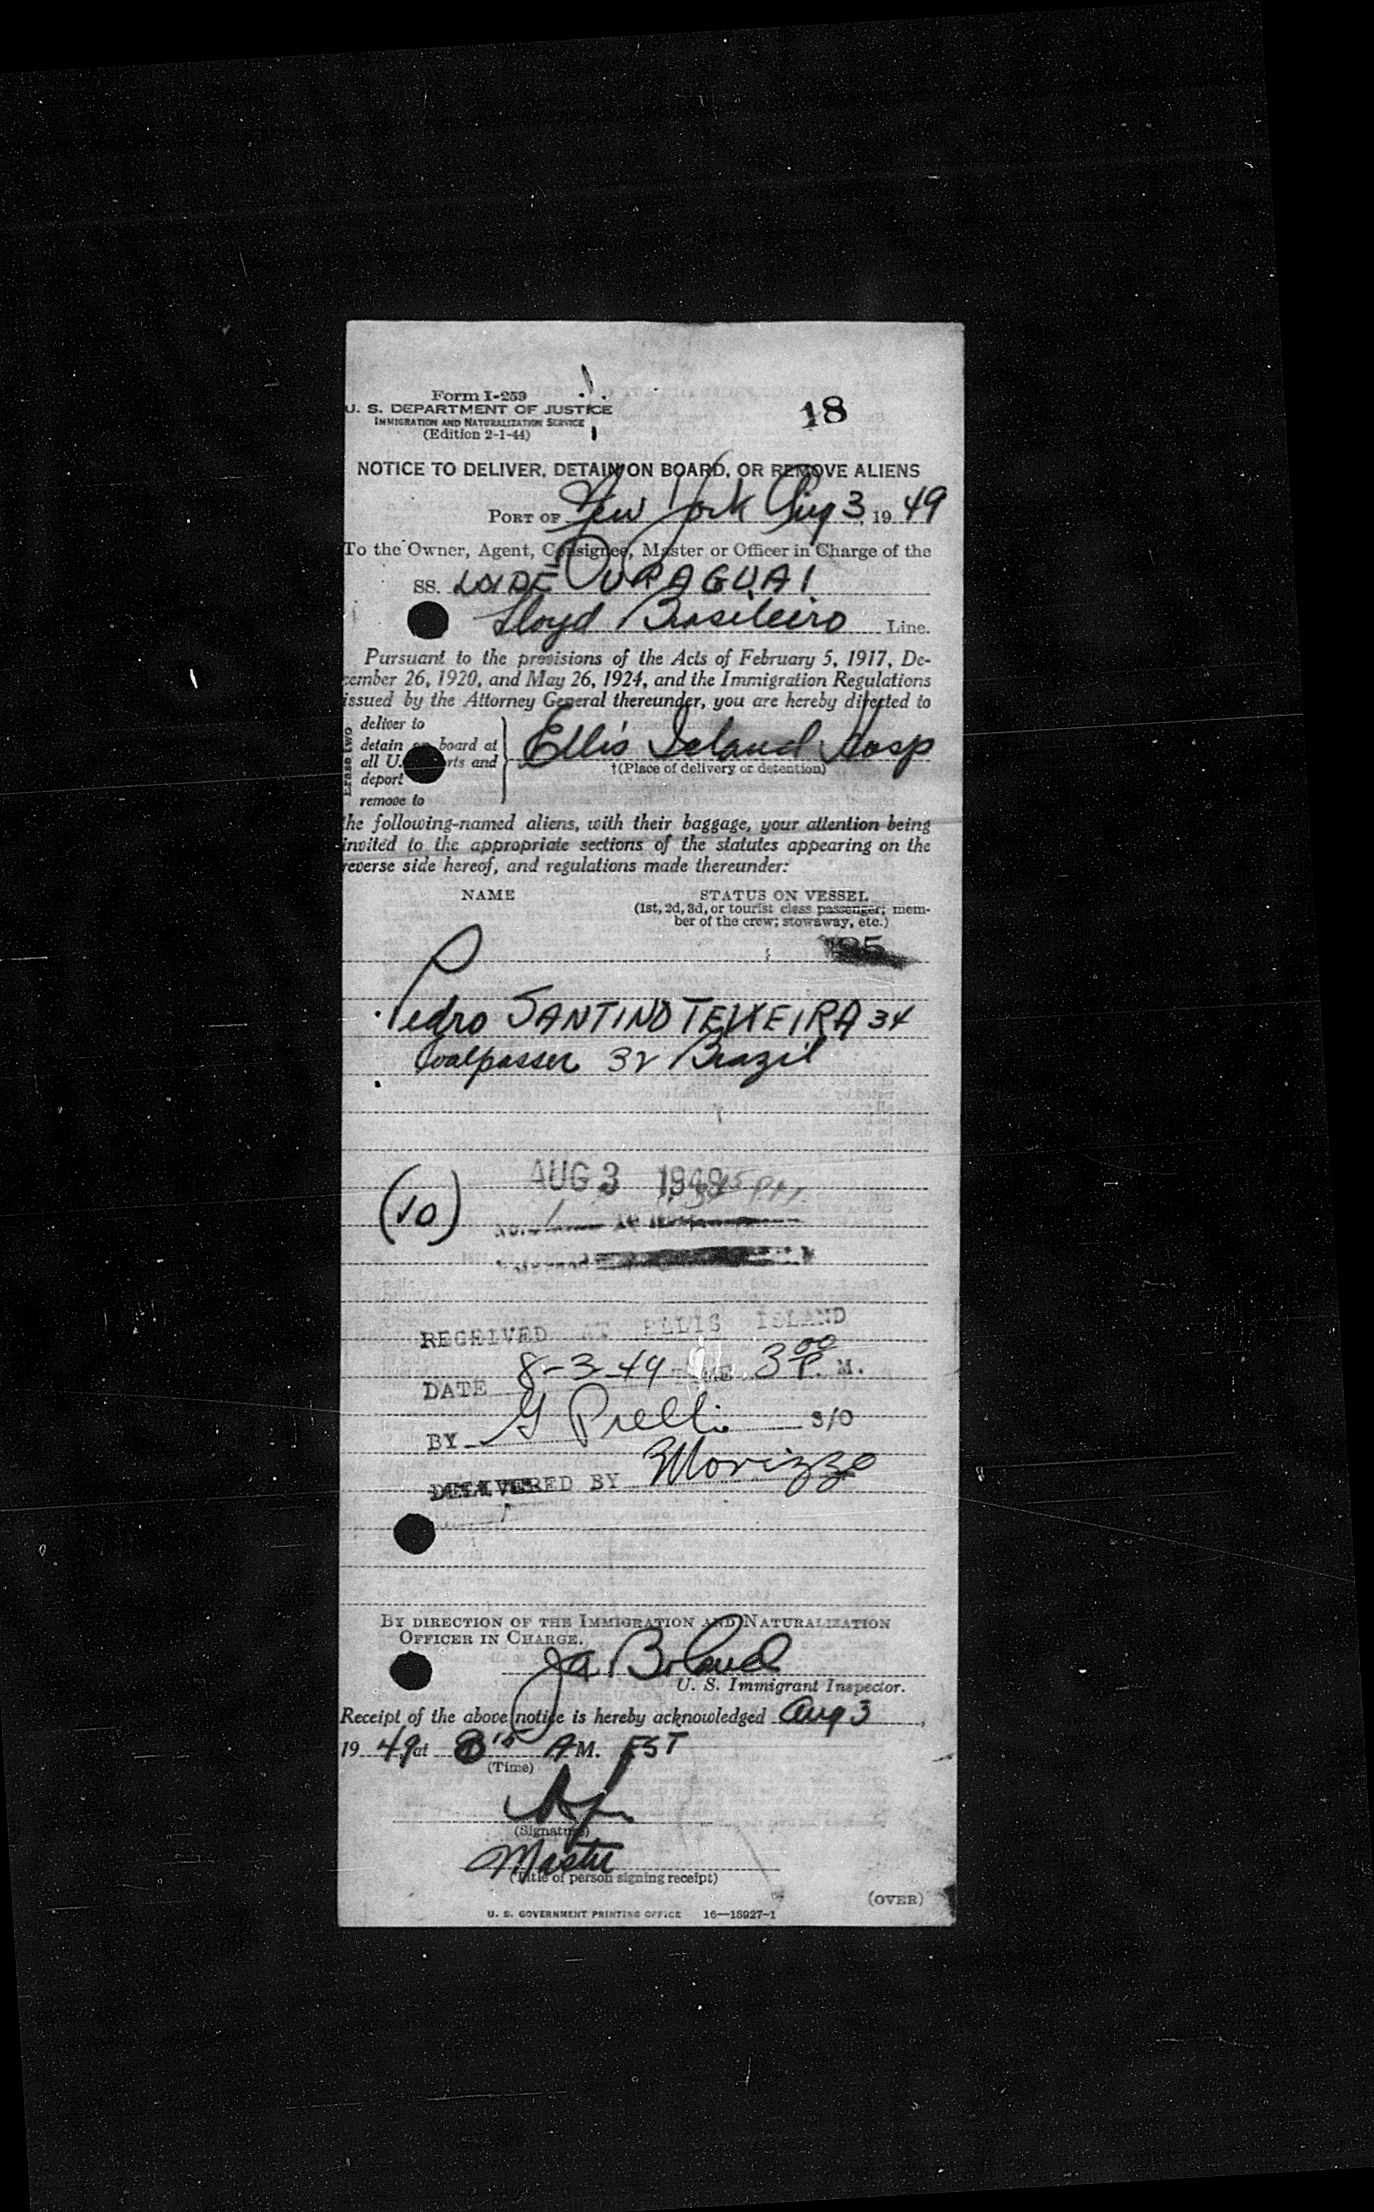 Form I-259
U. S. DEPARTMENT OF JUSTICE
IMMIGRATION AND NATURALIZATION SERVICE
(Edition 2-1-44)
18
NOTICE TO DELIVER, DETAIN ON BOARD, OR REMOVE ALIENS
PORT OF New York Aug 3, 19 49
To the Owner, Agent, Consignee, Master or Officer in Charge of the
SS. LOIDE URAGUAI
Lloyd Brasileiro Line.
Pursuant to the provisions of the Acts of February 5, 1917, De-
cember 26, 1920, and May 26, 1924, and the Immigration Regulations
issued by the Attorney General thereunder, you are hereby directed to
Erase two
deliver to
detain on board at
all U. ports and
deport
remove to
Ellis Island Hosp
†(Place of delivery or detention)
the following-named aliens, with their baggage, your attention being
invited to the appropriate sections of the statutes appearing on the
reverse side hereof, and regulations made thereunder:
NAME STATUS ON VESSEL
(1st, 2d, 3d, or tourist class passenger; mem-
ber of the crew; stowaway, etc.)
Pedro SANTINO TEIXEIRA 34
Coalpasser 32 Brazil
AUG 3 1949
(10)
RECEIVED AT ELLIS ISLAND
DATE 8-3-49 TIME 3 00 P. M.
BY G Prelli S/O
DELIVERED BY Morizzo
BY DIRECTION OF THE IMMIGRATION AND NATURALIZATION
OFFICER IN CHARGE.
Ja Boland
U. S. Immigrant Inspector.
Receipt of the above notice is hereby acknowledged Aug 3,
19 49 at 8 15 AM. EST
(Time)
(Signature)
Master
(Title of person signing receipt)
(OVER)
U. S. GOVERNMENT PRINTING OFFICE 16—18927-1